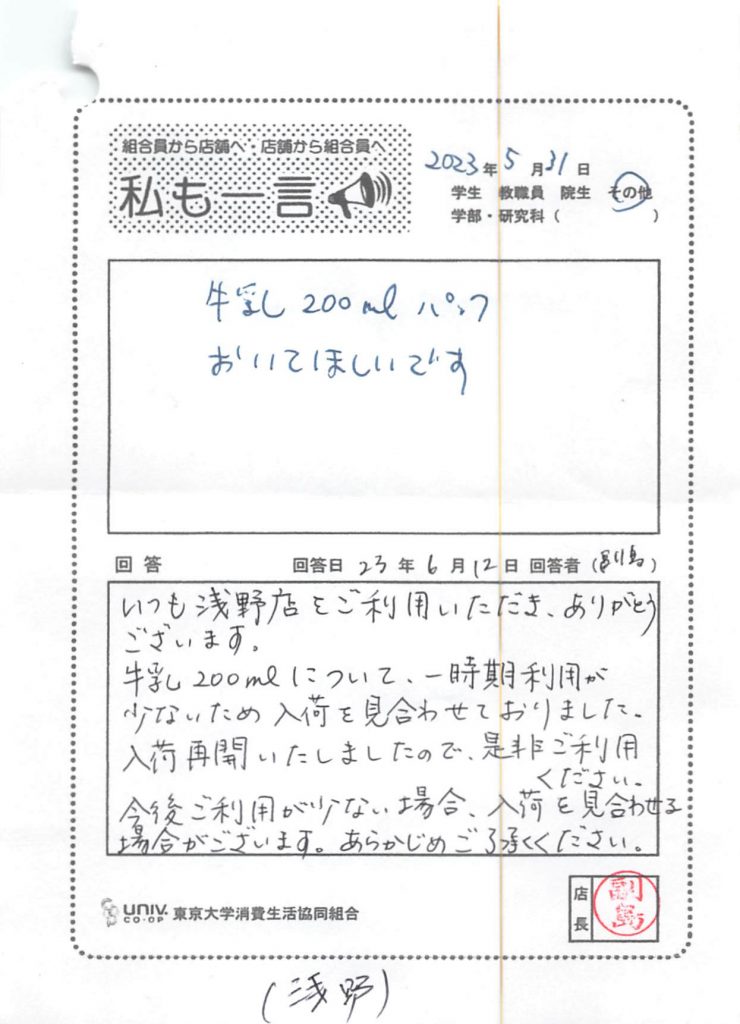 組合員から店舗へ・店舗から組合員へ
私も一言
2023年5月31日
学生 教職員 院生 その他
学部・研究科( )
牛乳 200ml パック
おいてほしいです
回答 回答日 23年6月12日 回答者(副島)
いつも浅野店をご利用いただき、ありがとう
ございます。
牛乳200mlについて、一時期利用が
少ないため入荷を見合わせておりました。
入荷再開いたしましたので、是非ご利用
ください。
今後ご利用が少ない場合、入荷を見合わせる
場合がございます。あらかじめご了承ください。
UNIV. CO-OP 東京大学消費生活協同組合
店長 副島
(浅野)